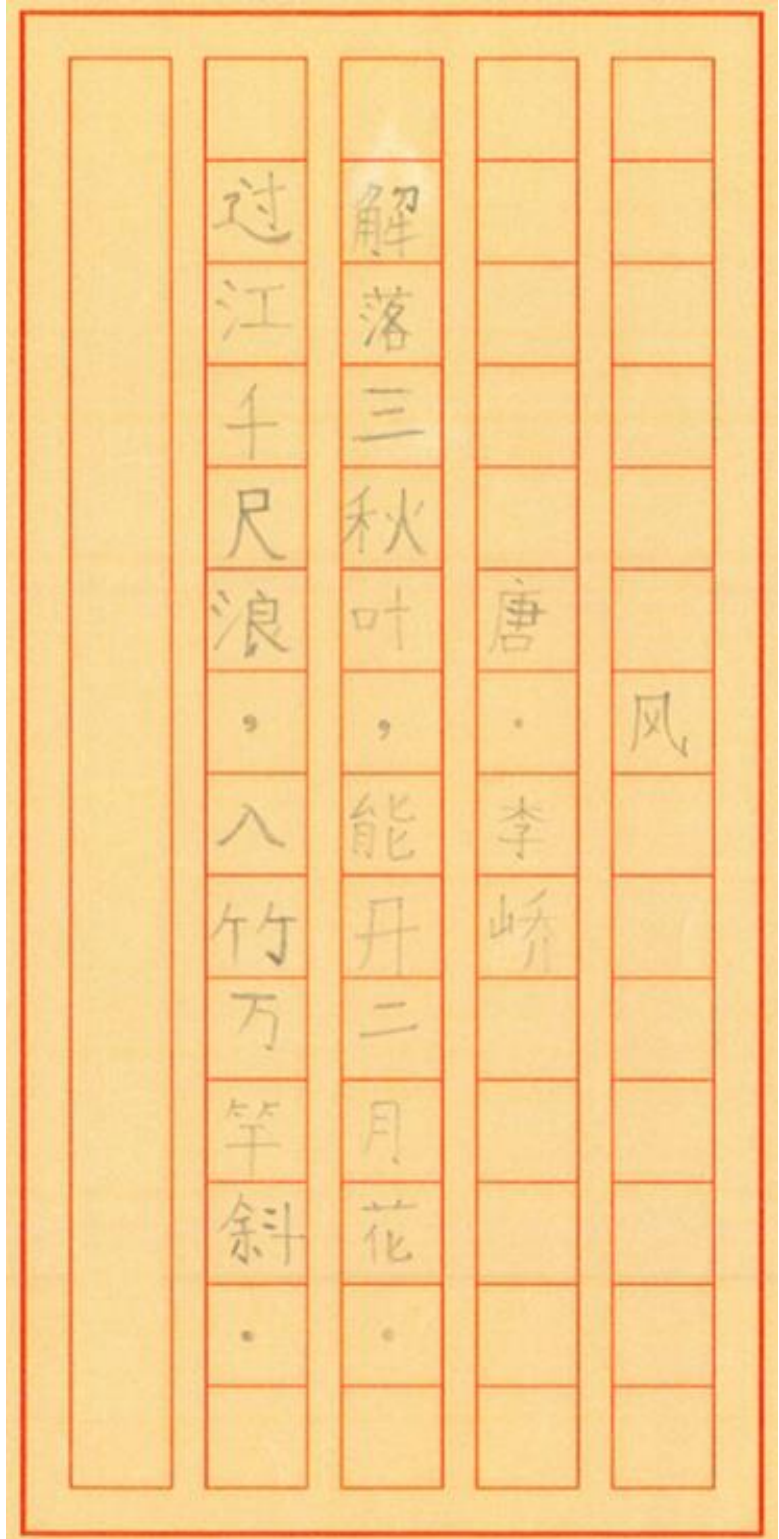 风
唐·李峤
解落三秋叶，能丹二月花。
过江千尺浪，入竹万竿斜。